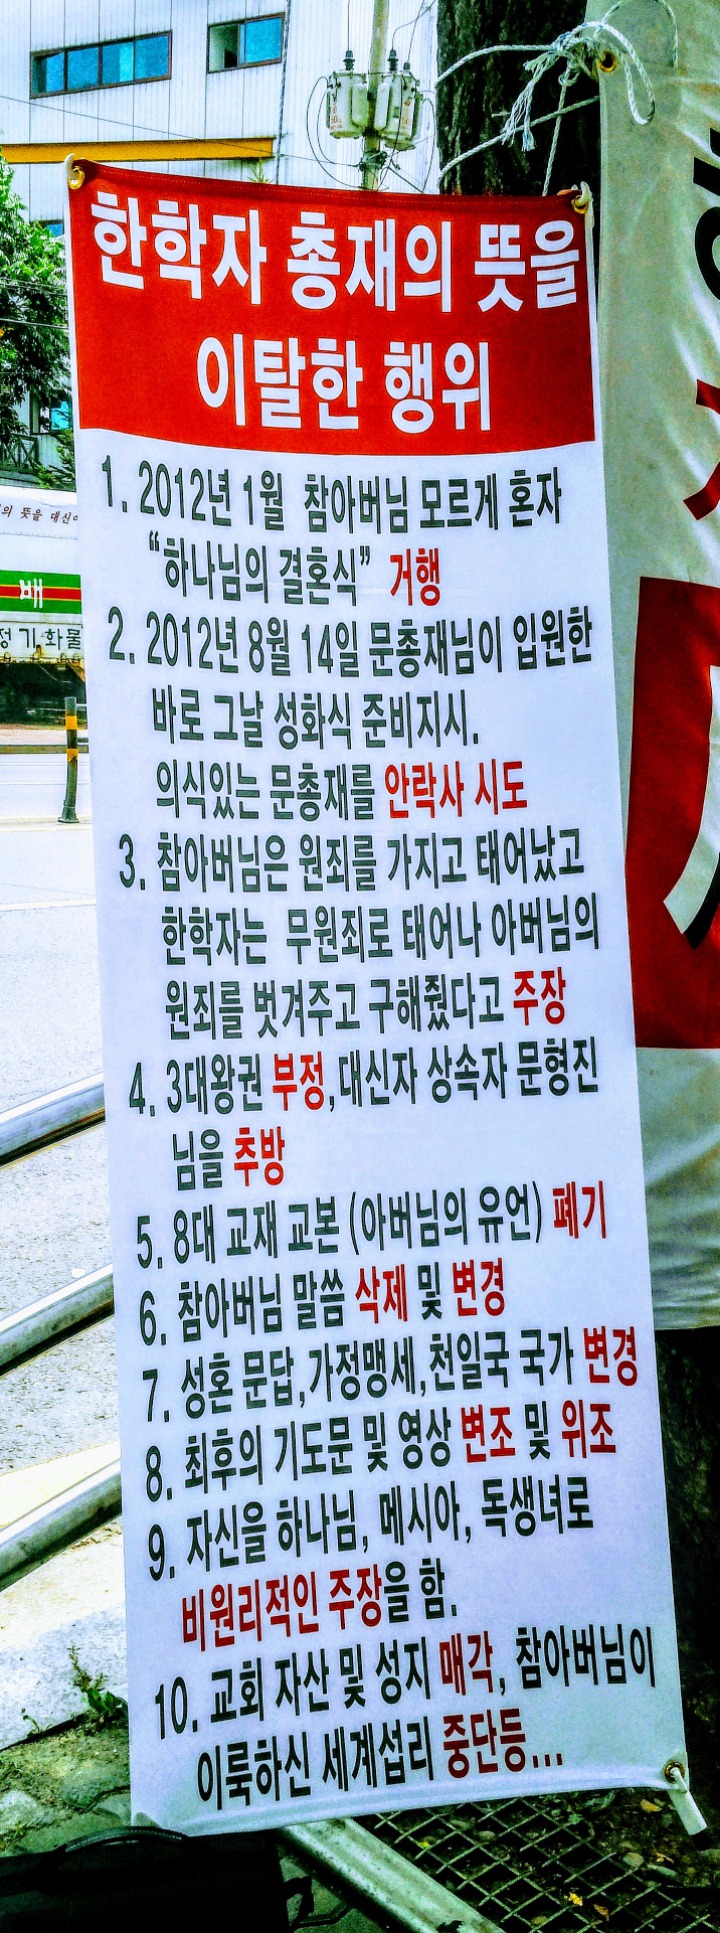 한학자 총재의 뜻을
이탈한 행위
1. 2012년 1월 참아버님 모르게 혼자
"하나님의 결혼식" 거행
2. 2012년 8월 14일 문총재님이 입원한
바로 그날 성화식 준비지시.
의식있는 문총재를 안락사 시도
3. 참아버님은 원죄를 가지고 태어났고
한학자는 무원죄로 태어나 아버님의
원죄를 벗겨주고 구해줬다고 주장
4. 3대왕권 부정, 대신자 상속자 문형진
님을 추방
5. 8대 교재 교본 (아버님의 유언) 폐기
6. 참아버님 말씀 삭제 및 변경
7. 성혼 문답, 가정맹세, 천일국 국가 변경
8. 최후의 기도문 및 영상 변조 및 위조
9. 자신을 하나님, 메시아, 독생녀로
비원리적인 주장을 함.
10. 교회 자산 및 성지 매각, 참아버님이
이룩하신 세계섭리 중단등...
의 뜻을 대신
배
정기화물